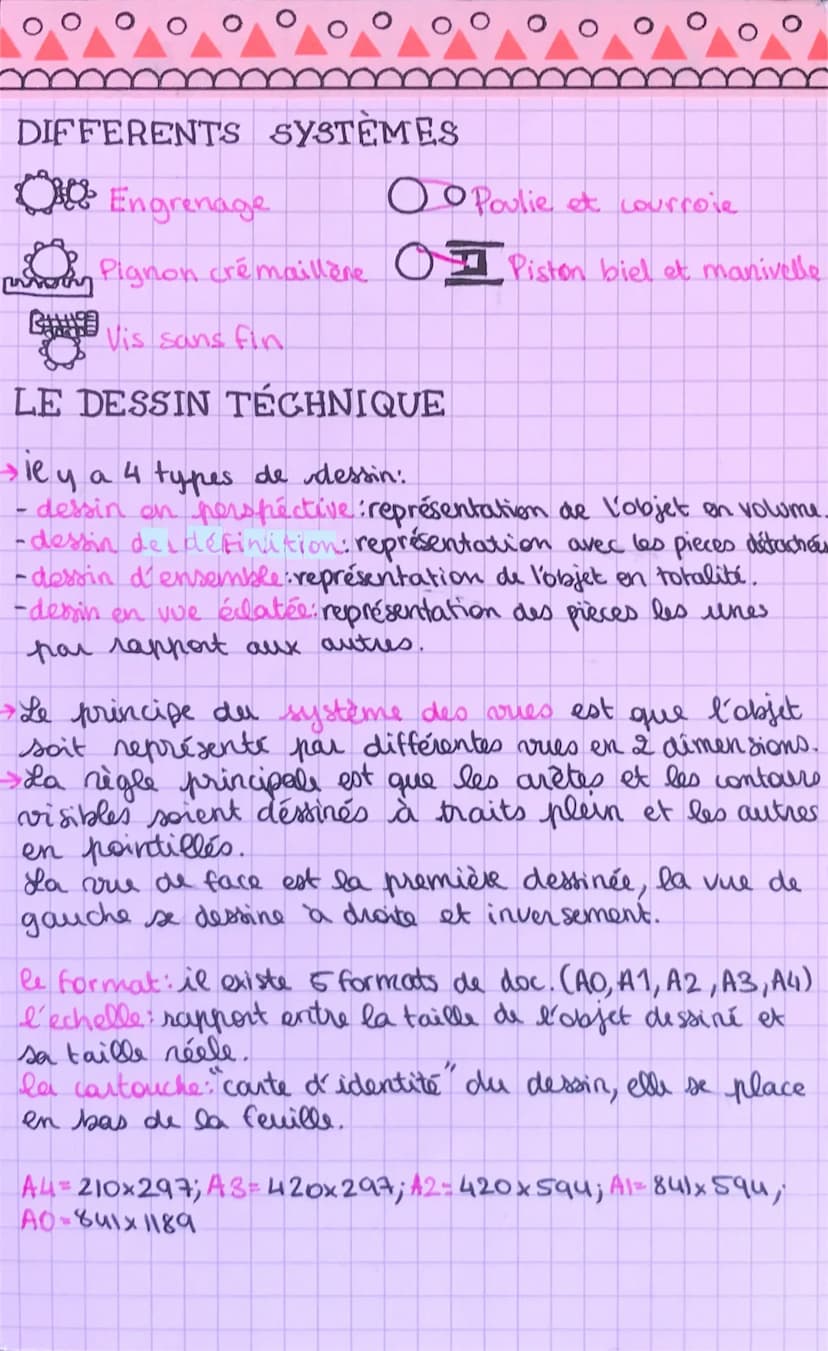 DIFFERENTS SYSTÈMES
Engrenage
Poulie et courroie
Pignon crémaillère
Piston biel et manivelle
Vis sans fin
LE DESSIN TÉCHNIQUE
→il y a 4 types de dessin:
- dessin en perspéctive: représentation de l'objet en volume.
- dessin de définition: représentation avec les pieces détachées
- dessin d'ensemble: représentation de l'objet en totalité.
- dessin en vue éclatée: représentation des pièces les unes
par rapport aux autres.
→Le principe du système des vues est que l'objet
soit représenté par différentes vues en 2 dimensions.
→La règle principale est que les arètes et les contours
visibles soient déssinés à traits plein et les autres
en pointillés.
La vue de face est la première dessinée, la vue de
gauche se dessine à droite et inversement.
le format: il existe 5 formats de doc. (A0, A1, A2, A3, A4)
l'echelle: rapport entre la taille de l'objet dessiné et
sa taille réele.
la cartouche: "carte d'identité" du dessin, elle se place
en bas de la feuille.
A4= 210x297; A3= 420x297; A2= 420x594; A1= 841x594;
A0=841x1189